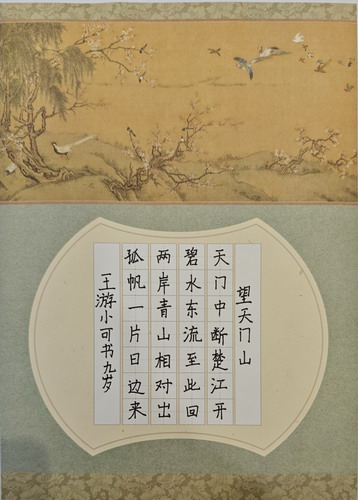 望天门山
天门中断楚江开
碧水东流至此回
两岸青山相对出
孤帆一片日边来
王游小可书九岁